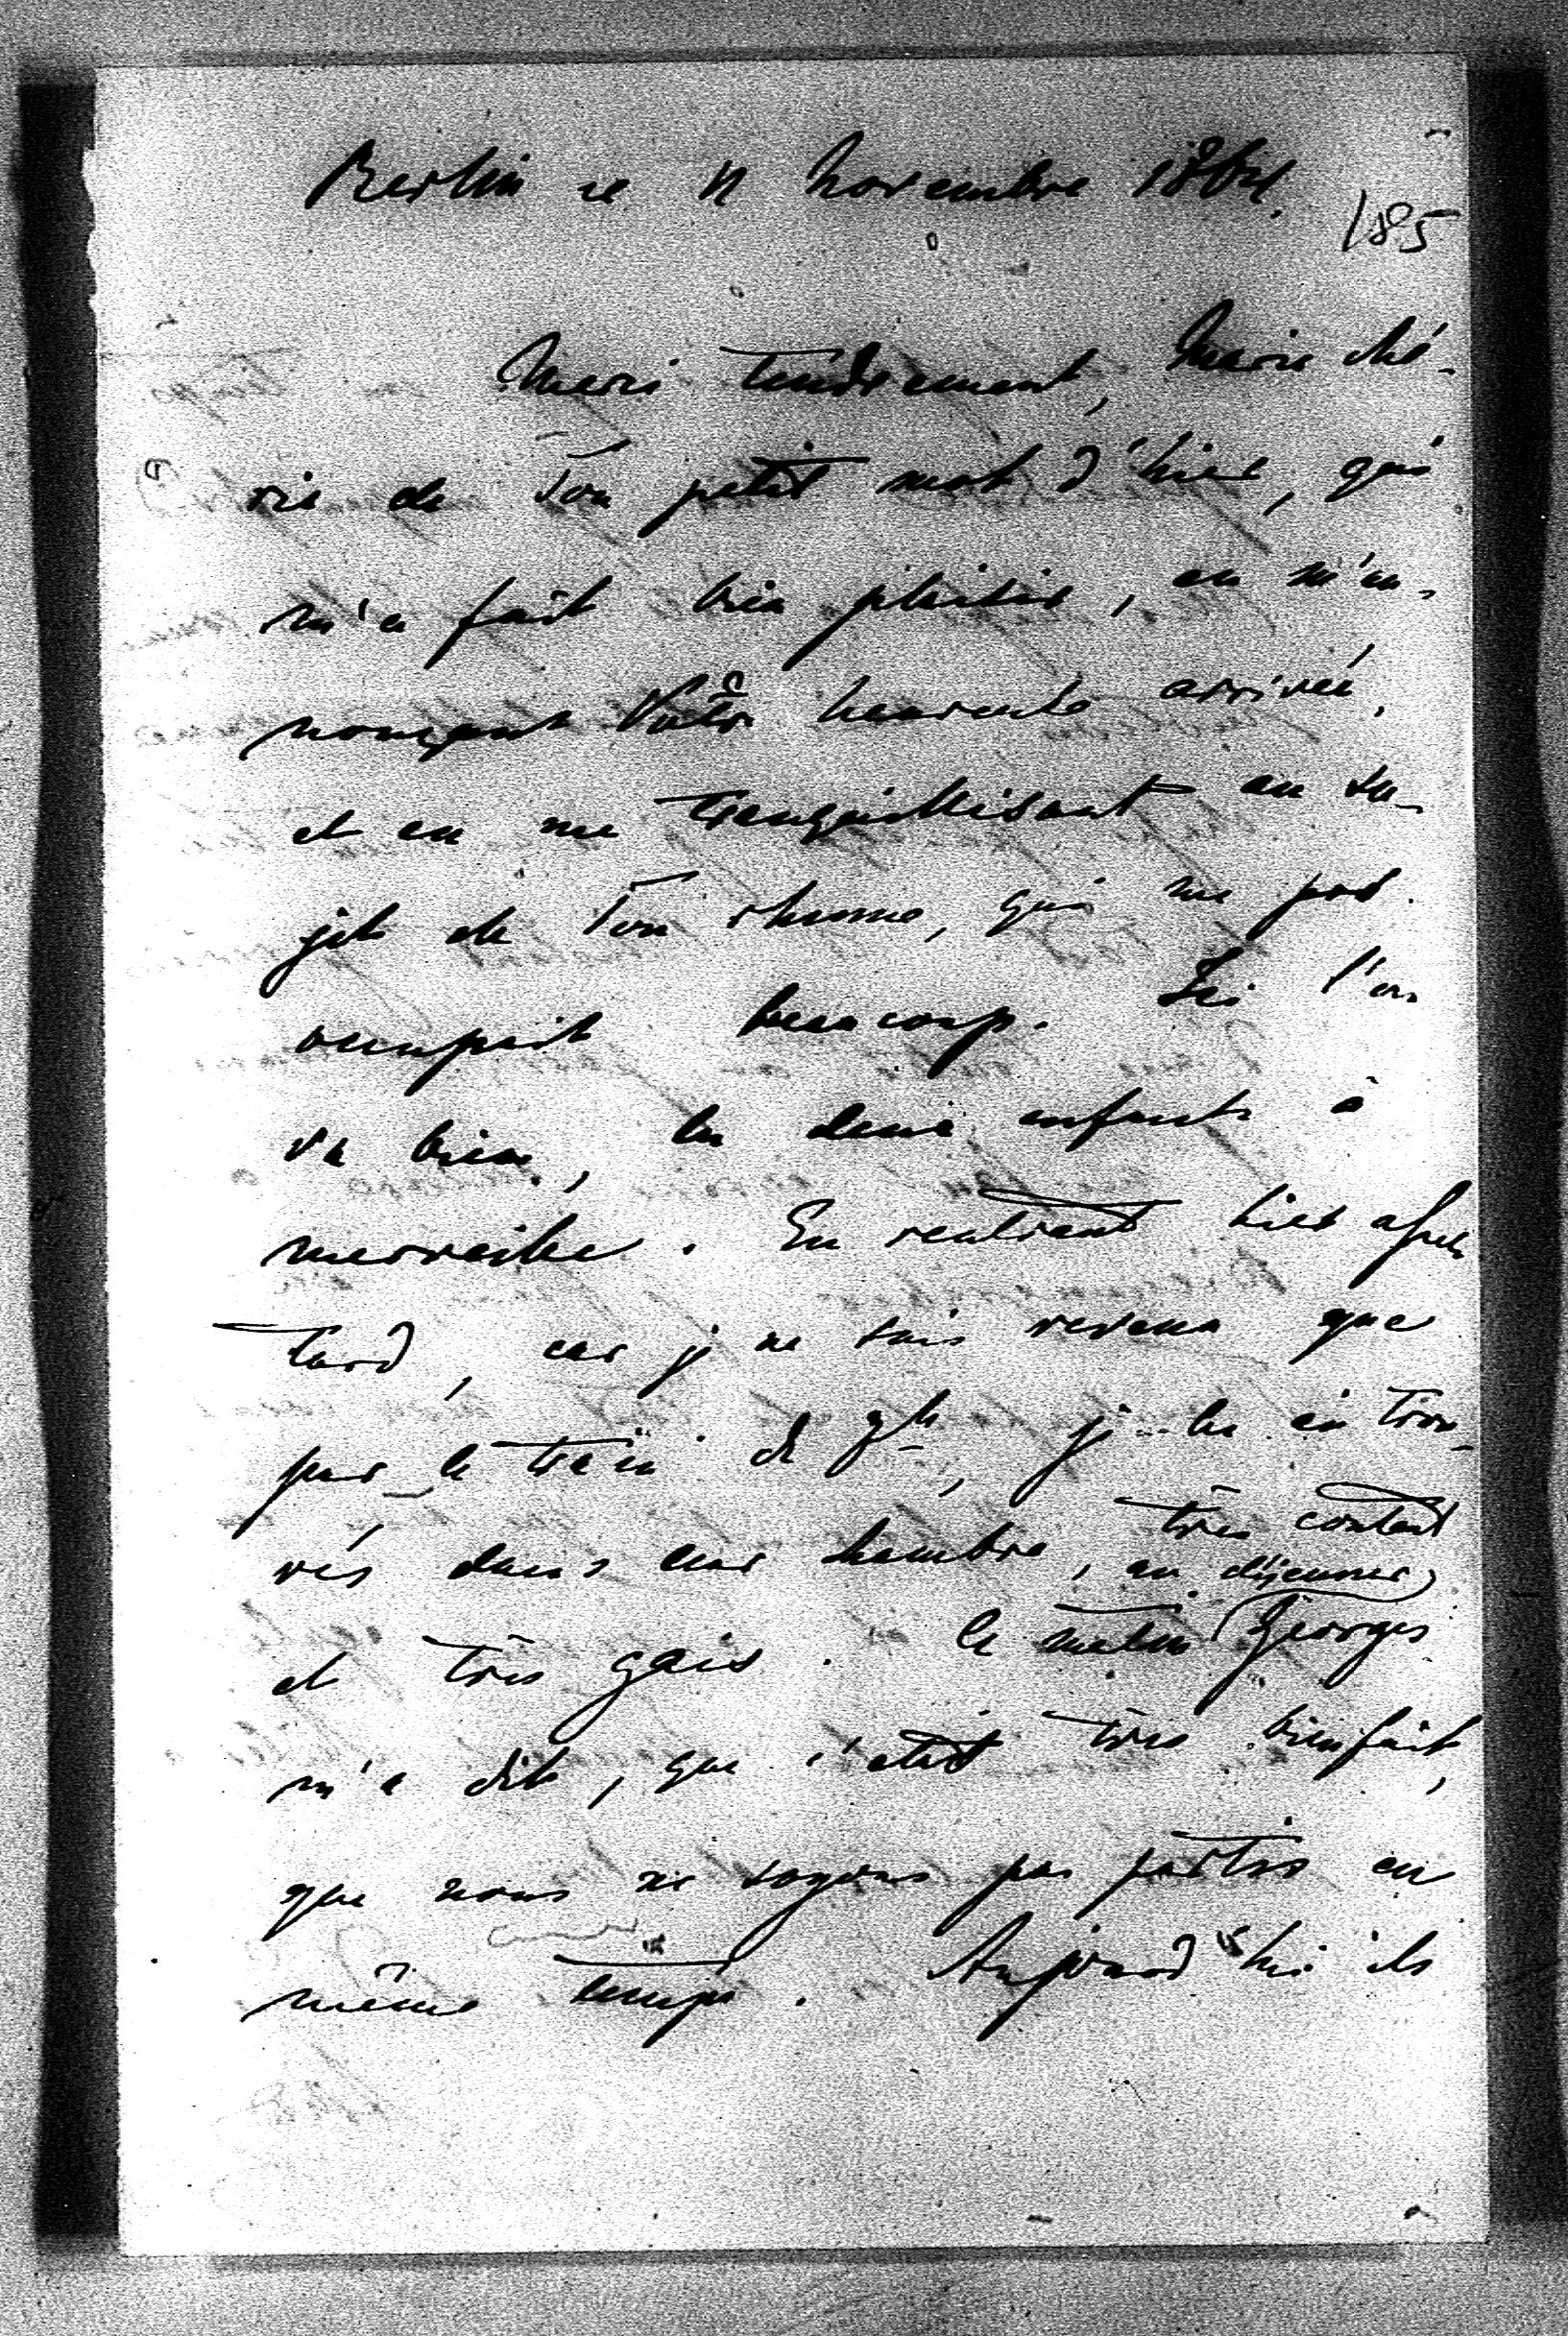 Berlin ce 11 Novembre 1864.
185
Merci tendrement, Marie ché-
rie de Ton petit mot d'hier, qui
m'a fait bien plaisir, en m'an-
nonçant Votre heureuse arrivée,
et en me tranquillisant au su-
jet de Ton rhume, qui me pré-
occupait beaucoup. Ici l'on
va bien, les deux enfants à
merveille. En rentrant hier assez
tard, car je ne suis revenu que
par le train de 9h, je les ai trou-
vés dans leur chambre, très content
et très gais. Le matin, au déjeuner, Georges
m'a dit, que c'était très bien fait,
que nous ne soyons pas partis en
même temps. Aujourd'hui ils